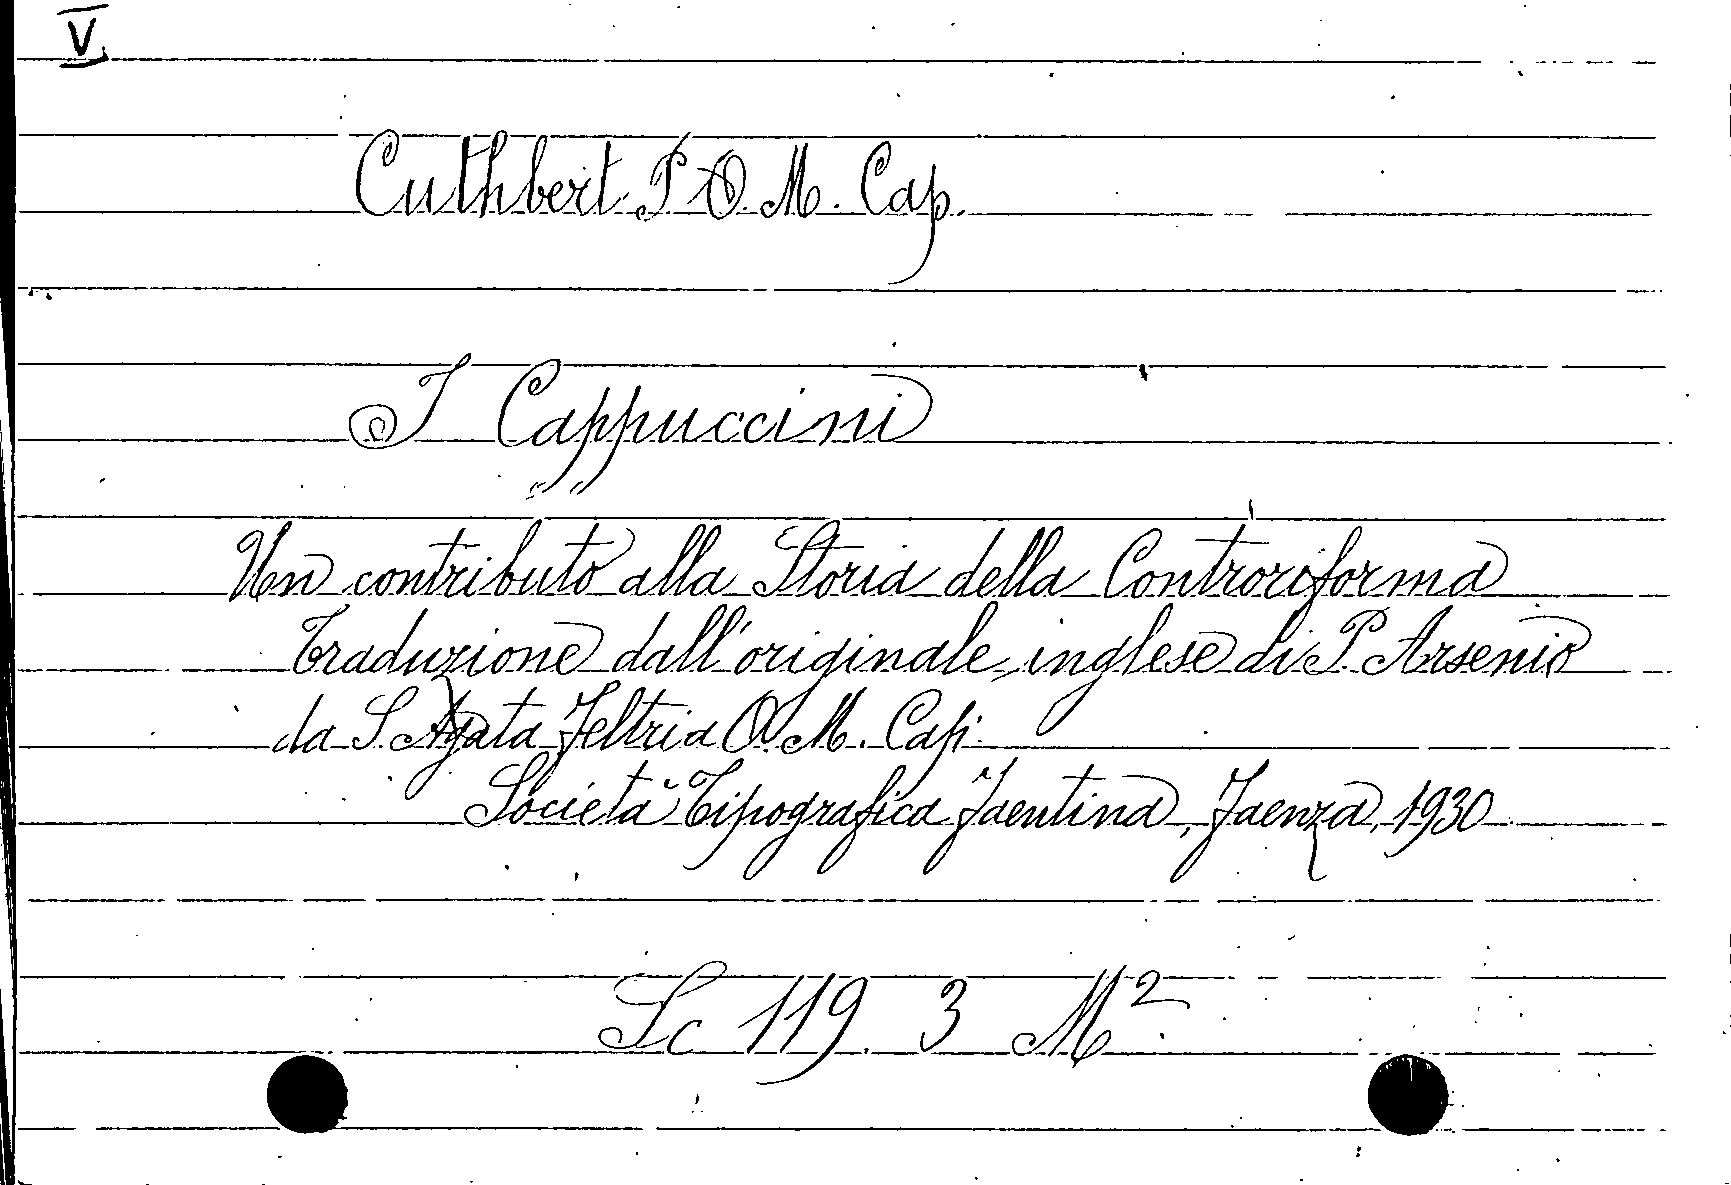 V
Cuthbert P. O. M. Cap.
I Cappuccini
Un contributo alla Storia della Controriforma
Traduzione dall'originale inglese di P. Arsenio
da S. Agata Feltria O. M. Cap.
Società Tipografica Faentina, Faenza, 1930
Sc 119. 3 M²